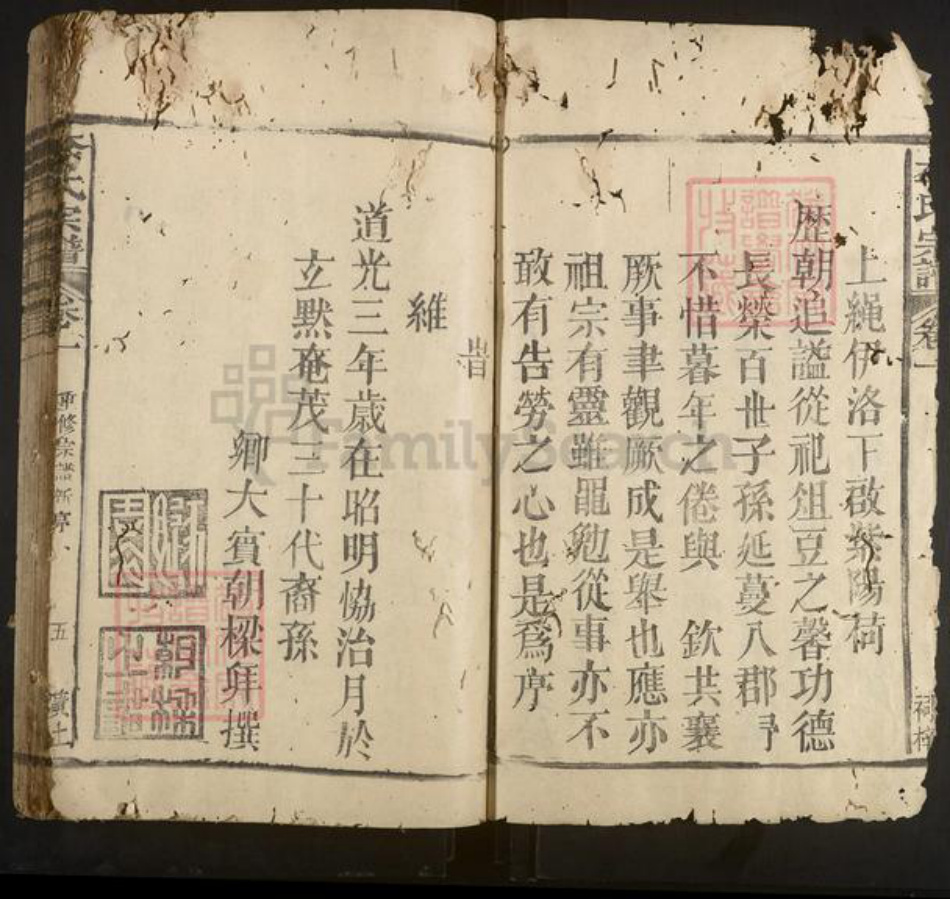 上繩伊洛下啟紫陽荷
歷朝追謚從祀俎豆之馨功德
長榮百世子孫延蔓八郡予
不惜暮年之倦與 欽共襄
厥事聿觀厥成是舉也應亦
祖宗有靈雖黽勉從事亦不
敢有告勞之心也是為序
旹
維
道光三年歲在昭明協洽月於
玄黙奄茂三十代裔孫
鄉大賓朝樑拜撰
氏宗譜 卷一 重修宗譜新序 五
氏宗譜 卷一
FamilySearch